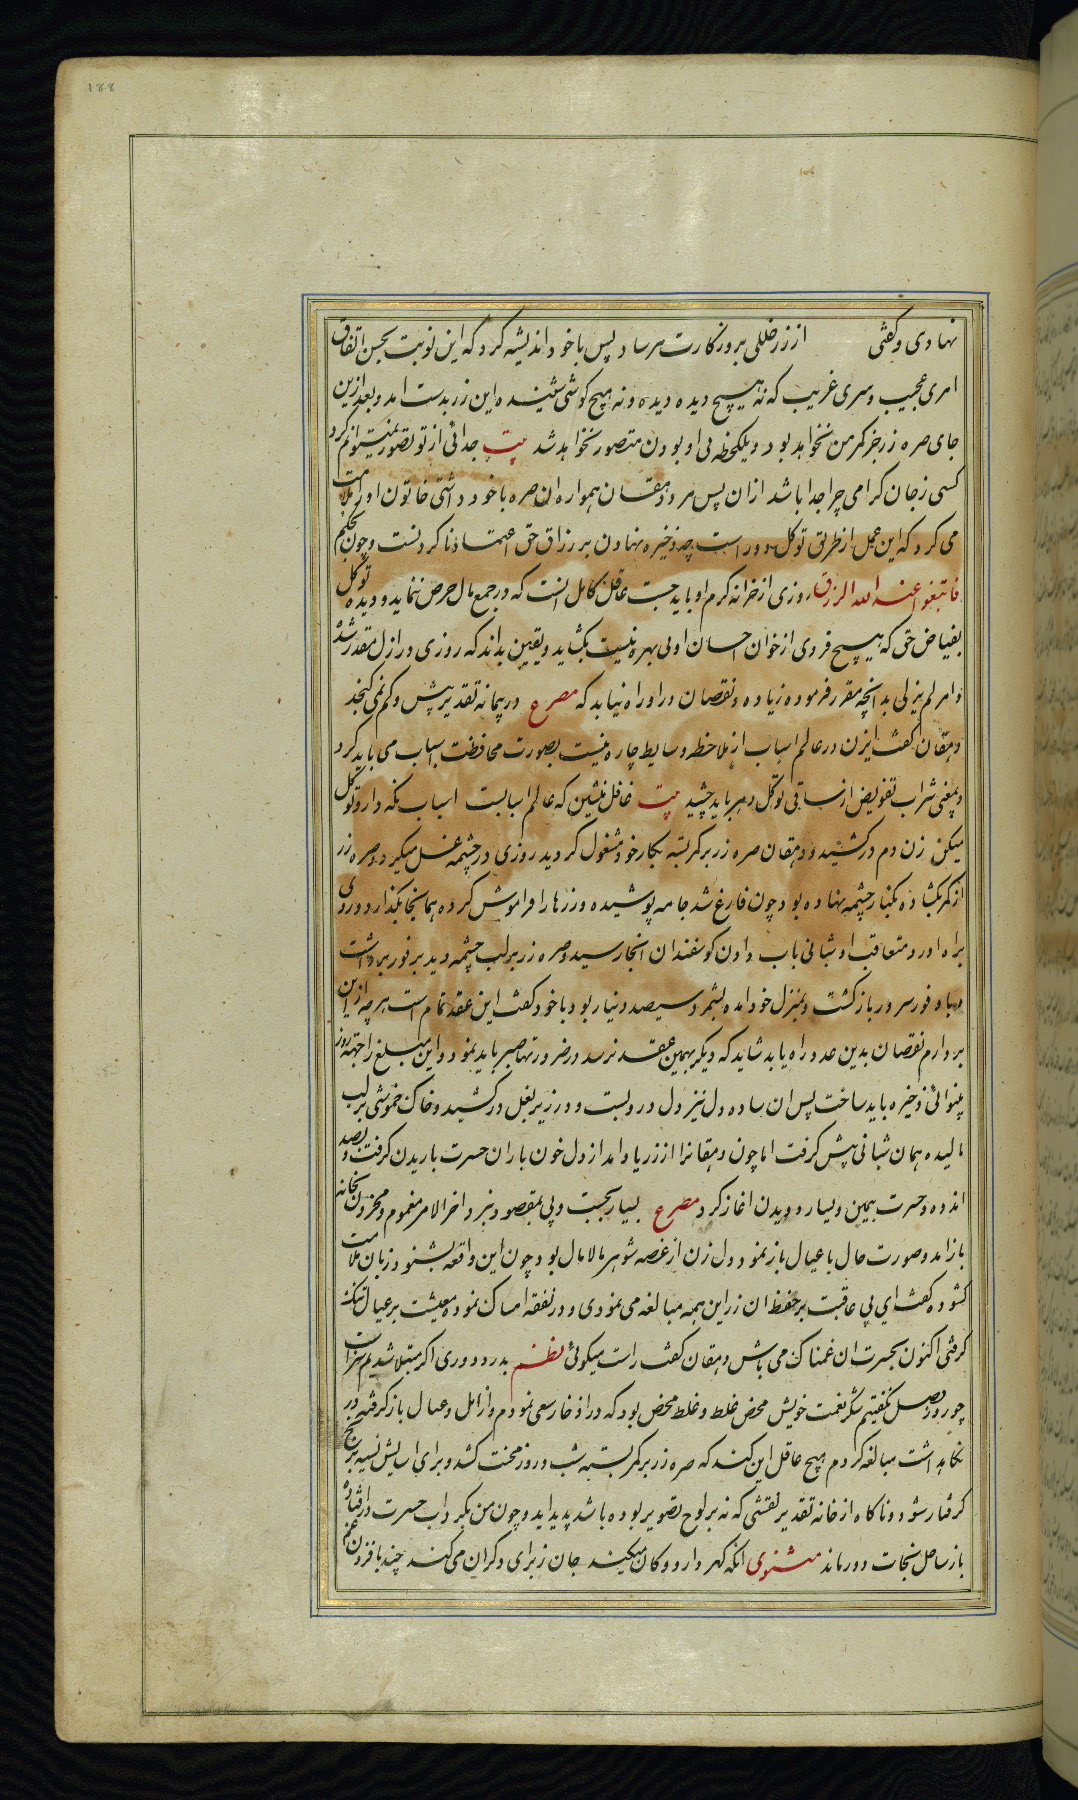 ۱۸۸
نهادی و گفتی از زر خللی بروزکارت مرساد پس با خود اندیشه کرد که این نوبت بحسن اتفاق
امری عجیب و سری غریب که نه هیچ دیده دیده و نه هیچ کوشی شنیده این زر بدست امد و بعد ازین
جای صره زر جز کمر من نخواهد بود و یکلحظه بی او بودن متصور نخواهد شد بیت جدائی از تو تصور نمیتوانم کرد
کسی زجان کرامی چرا جدا باشد ازان پس مرد دهقان همواره ان صره با خود داشتی خاتون اورا ملامت
می کرد که این عمل از طریق توکل دور است چه ذخیره نهادن بر رزاق حق اعتماد ناکردنست و چون بحکم
فابتغوا عند الله الرزق روزی از خزانه کرم او باید جست عاقل کامل انست که در جمع مال حرص ننماید و دیده توکل
بفیاض حق که هیچ فردی از خوان احسان او بی بهره نیست بکشاید و یقین بداند که روزی در ازل مقدر شده
و امر لم یزلی بدانچه مقرر فرموده زیاده و نقصان را در او راه نیابد که مصرع در پیمانه تقدیر بیش و کم نمی کنجد
دهقان کفت ایزن در عالم اسباب از ملاحظه وسایط چاره نیست بصورت محافظت اسباب می باید کرد
و بمعنی شراب تفویض از ساقی توکل می باید چشید بیت غافل منشین که عالم اسبابست اسباب نکه دار و توکل
میکن زن دم درکشید و دهقان صره زر بر کمر بسته بکار خود مشغول کردید روزی در چشمه غسل میکرد و صره زر
از کمر بکشاده بکنار چشمه نهاده بود چون فارغ شد جامه پوشیده و زرها را فراموش کرده همانجا بکذارد و روی
براه اورد متعاقب او شبانی باب دادن کوسفندان انجا رسید و صره زر بر لب چشمه دید بر فور برداشت
و با وفور سرور بازکشت و بمنزل خود امده بشمرد سیصد دینار بود با خود کفت این عقد تمام است هر چه ازین
بردارم نقصان بدین عدد راه یابد شاید که دیکر بهمین عقد نرسد و ضرورتها صبر باید نمود و این مبلغ را جهته روز
بینوائی ذخیره باید ساخت پس ان ساده دل نیز دل در و بست و در زیر بغل درکشید و خاک خموشی بر لب
مالیده همان شبانی پیش کرفت اما چون دهقانرا از زر یاد امد از دل خون باران حسرت باریدن کرفت و بصد
اندوه و حسرت بیمین و یسار دویدن اغاز کرد مصرع بسیار بجست و پی بمقصود نبرد اخرالامر مغموم و محزون بخانه
باز امد و صورت حال با عیال باز نمود دل زن از غصه شوهر مالامال بود چون این واقعه بشنود زبان ملامت
کشوده کفت ای بی عاقبت بر حفظ ان زر این همه مبالغه می نمودی و در نفقه امساک نموده معیشت بر عیال تنک
کرفتی اکنون بحسرت ان غمناک می باش دهقان کفت راست میکوئی نظم بدرد دوری اکر مبتلا شدیم سزاست
چو روز وصل نکفتیم شکر نعمت خویش محض غلط و غلط محض بود که در اذخار سعی نمودم و از اهل و عیال باز کرفته در
نکاهداشت مبالغه کردم هیچ عاقل این کند که صره زر بر کمر بسته شب و روز محنت کشد و برای اسایش نسیه برنج
کرفتار شود و ناکاه از خانه تقدیر نقشی که نه بر لوح تصویر بوده باشد پدید اید و چون من بکرداب حسرت درافتاده
باز ساحل نجات دور ماند مثنوی انکه کهر دارد و کان میکند جان زبرای دکران می کند چند بافزدن غم